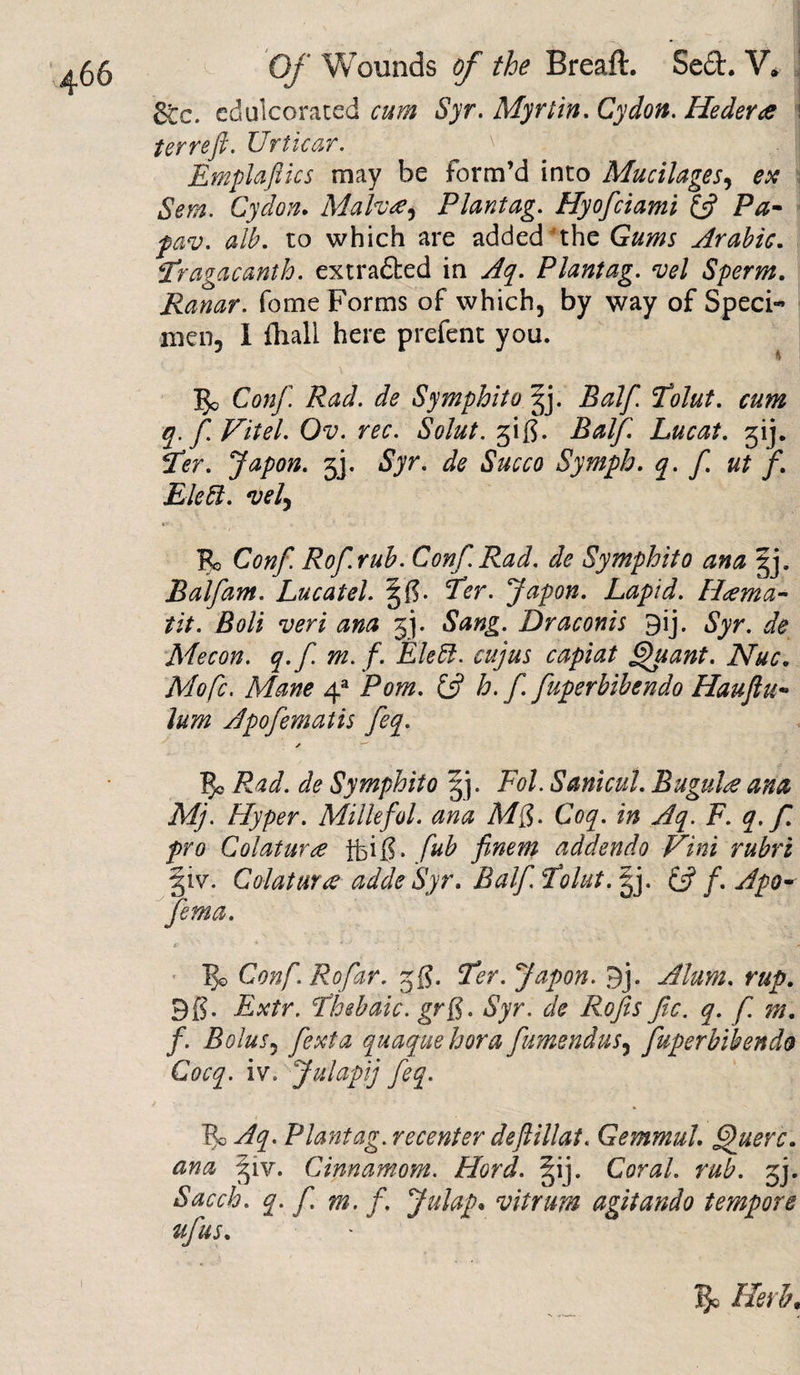 466
Of Wounds of the Breaſt. Sect. V.
&c. edulcorated cum Syr. Myrtin. Cydon. Hederæ
terreſt. Urticar.
Emplaſtics may be form’d into Mucilages, ex
Sem. Cydon. Malvæ, Plantag. Hyoſciami & Pa-
pav. alb. to which are added the Gums Arabic.
Tragacanth. extracted in Aq. Plantag. vel Sperm.
Ranar. ſome Forms of which, by way of Speci-
men, I ſhall here preſent you.
℞ Conſ. Rad. de Symphito ℥j. Balſ. Tolut. cum
q. ſ. Vitel. Ov. rec. Solut. ʒiß. Balſ. Lucat. ʒij.
Ter. Japon. ʒj. Syr. de Succo Symph. q. ſ. ut f.
Elect. vel,
℞ Conſ. Roſ. rub. Conſ. Rad. de Symphito ana ℥j.
Balſam. Lucatel. ℥ß. Ter. Japon. Lapid. Hæma-
tit. Boli veri ana ʒj. Sang. Draconis ℈ij. Syr. de
Mecon. q. ſ. m. f. Elect. cujus capiat Quant. Nuc.
Moſc. Mane 4ª Pom. & h. ſ. ſuperbibendo Hauſtu-
lum Apoſematis ſeq.
℞ Rad. de Symphito ℥j. Fol. Sanicul. Bugulæ ana
Mj. Hyper. Millefol. ana Mß. Coq. in Aq. F. q. ſ.
pro Colaturæ ℔iß. ſub finem addendo Vini rubri
℥iv. Colaturæ adde Syr. Balſ. Tolut. ℥j. & f. Apo-
ſema.
℞ Conſ. Roſar. ʒß. Ter. Japon. ℈j. Alum. rup.
℈ß. Extr. Thebaic. grß. Syr. de Roſis ſic. q. ſ. m.
f. Bolus, ſexta quaque hora ſumendus, ſuperbibendo
Cocq. iv. Julapij ſeq.
℞ Aq. Plantag. recenter deſtillat. Gemmul. Querc.
ana ℥iv. Cinnamom. Hord. ℥ij. Coral. rub. ʒj.
Sacch. q. ſ. m. f. Julap. vitrum agitando tempore
uſus.
℞ Herb.